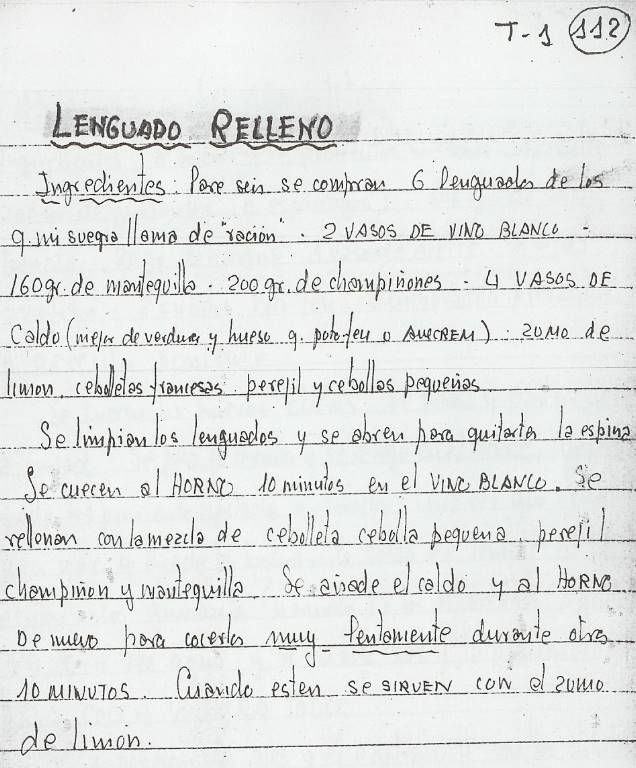 T-1 112
LENGUADO RELLENO
Ingredientes: Para seis se compran 6 lenguados de los
q. mi suegra llama de "ración". 2 VASOS DE VINO BLANCO -
160 gr. de mantequilla. 200 gr. de champiñones. 4 VASOS DE
Caldo (mejor de verduras y hueso q. poto-feu o AVECREM). ZUMO de
limon. cebolletas francesas. perejil y cebollas pequeñas
Se limpian los lenguados y se abren para quitarles la espina
Se cuecen al HORNO 10 minutos en el VINO BLANCO. Se
rellenan con la mezcla de cebolleta cebolla pequena, perejil
champiñon y mantequilla Se añade el caldo y al HORNO
De nuevo para cocerlos muy-lentamente durante otros
10 MINUTOS. Cuando esten se SIRVEN CON el zumo
de limón.